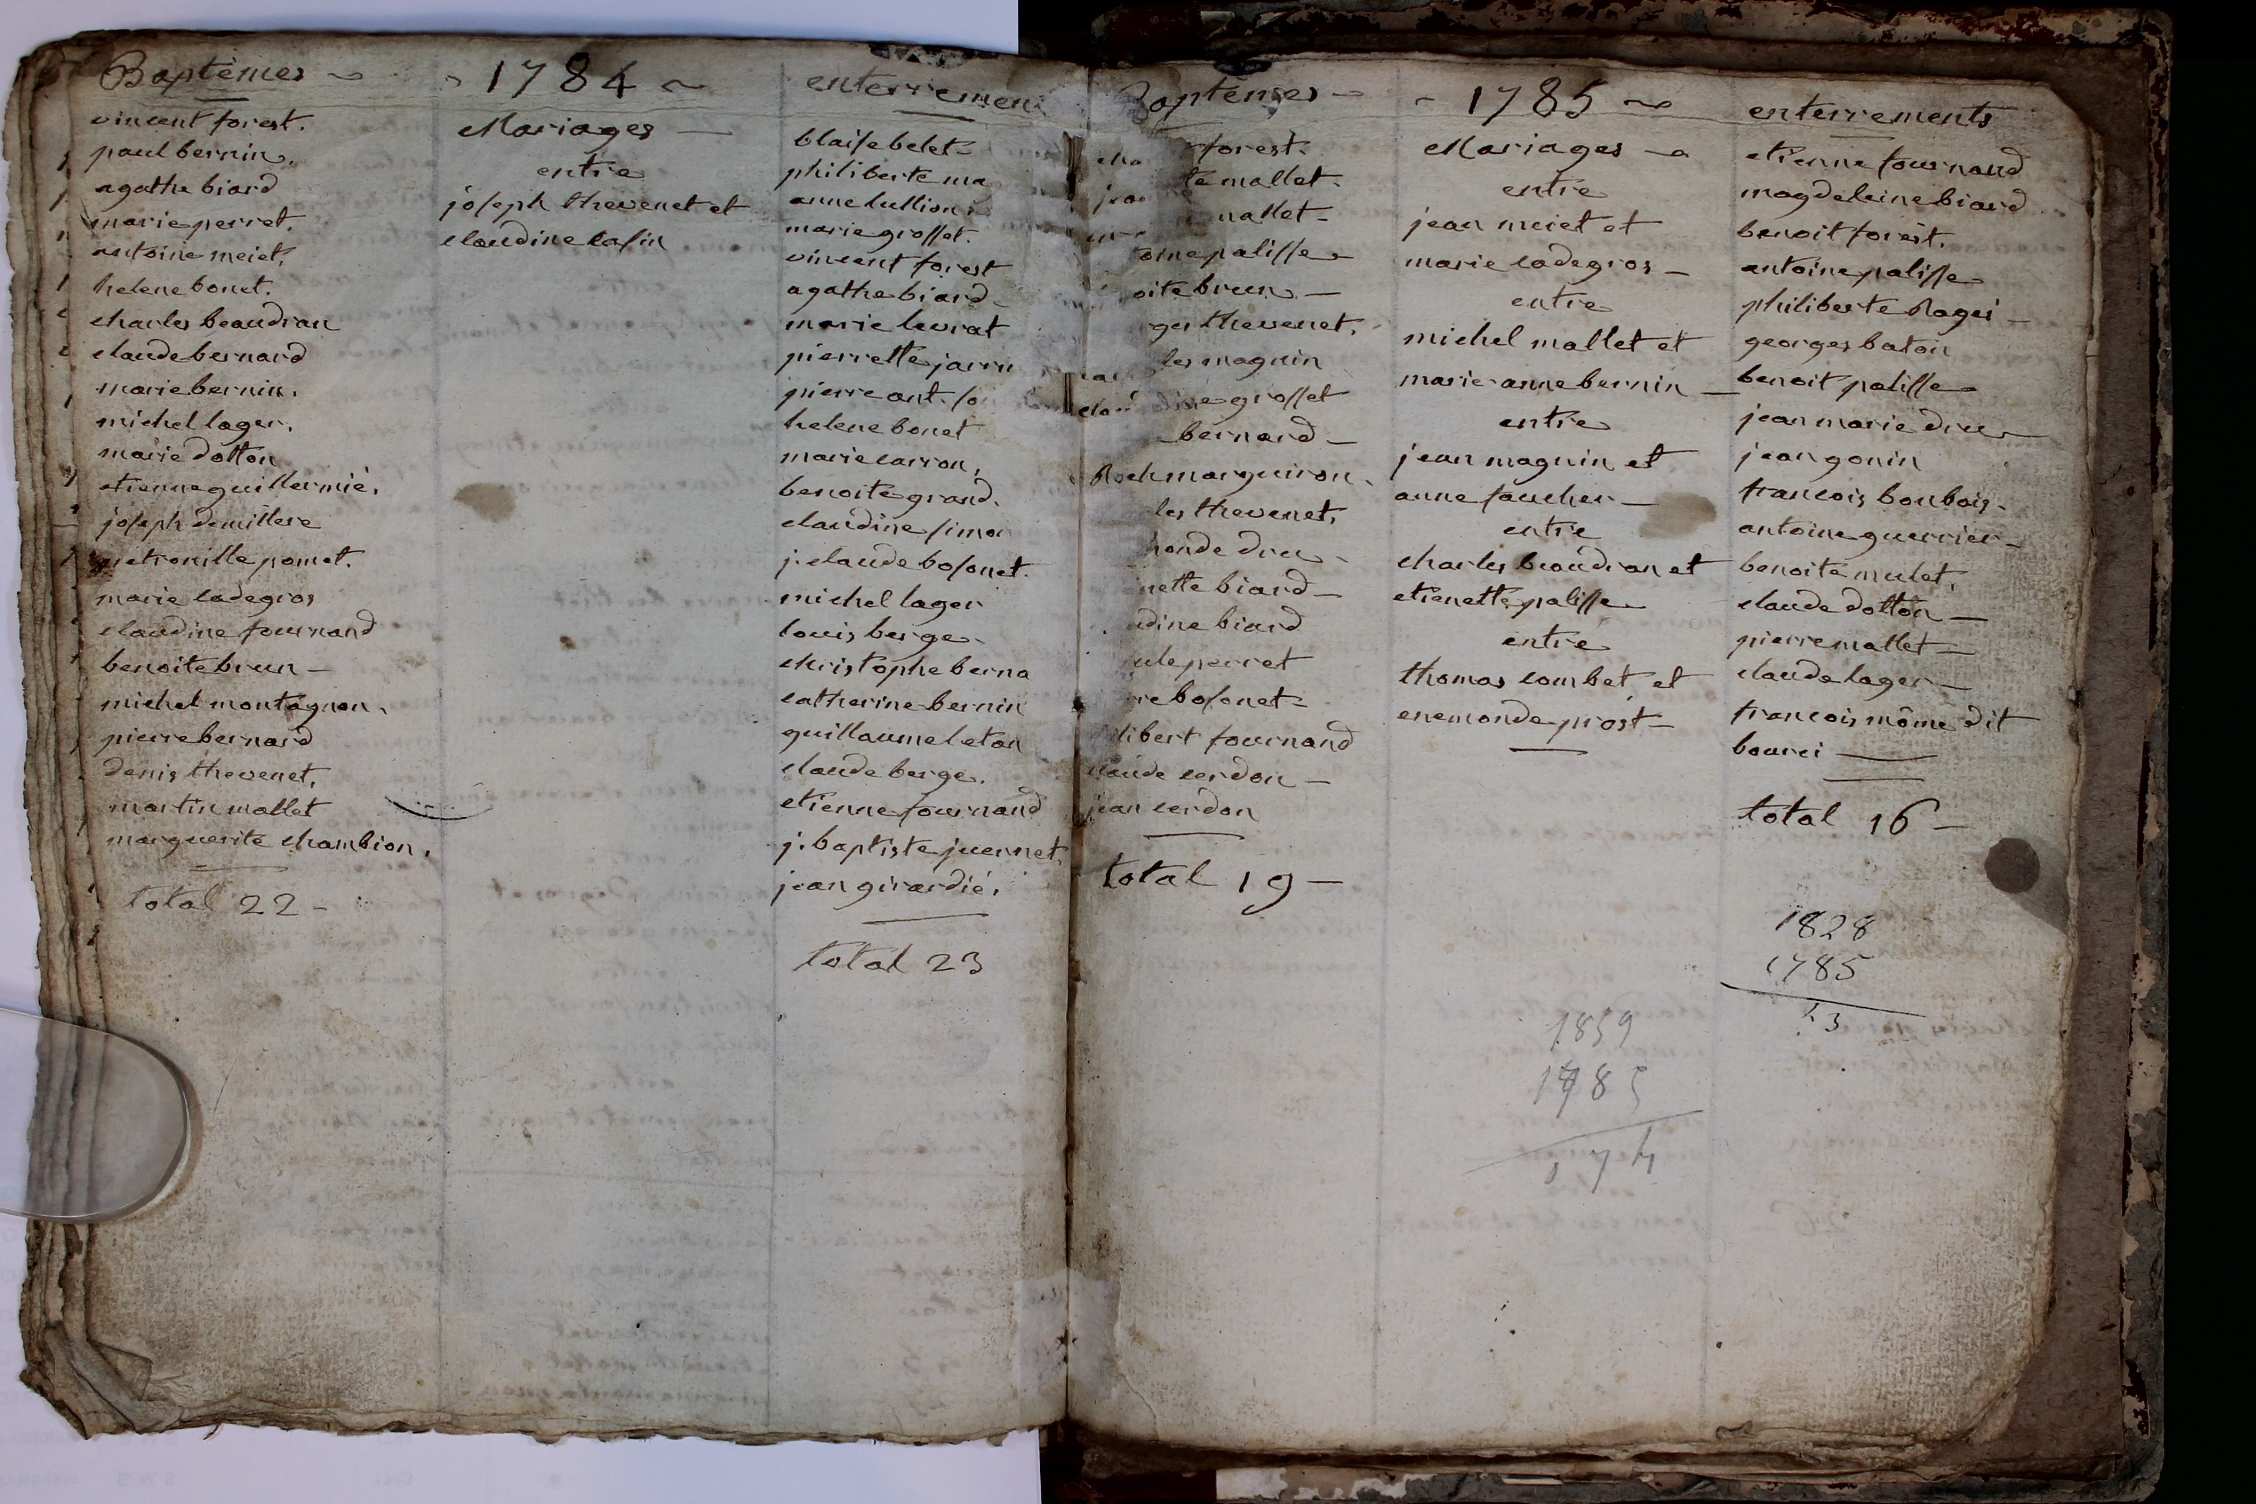 Baptêmes
vincent forest.
paul bernin.
agathe biard
marie perret.
antoine meiet.
helene bonet.
charles beaudran
claude bernard
marie bernin.
michel lager.
marie dotton
etienne guillermié.
joseph demillere
petronille pomet.
marie cadegros
claudine fournand
benoite brun -
michel montagnon.
pierre bernard
denis thevenet.
martin mallet
marguerite chambion.
total 22 -
~ 1784 ~
Mariages -
entre
joseph thevenet et
claudine
enterremen
blaise belet -
philiberte ma
anne lullion.
marie grosset.
vincent forest
agathe biard -
marie levrat
pierrette jarrn
pierre ant.
helene bonet
marie carron.
benoite grand.
claudine simon
j. claude bosonet.
michel lager
louis berge -
christophe berna
catherine bernin
guillaume leton
claude berge.
etienne fournand
j. baptiste juennet.
jean girardié.
total 23
Baptemes -
forest.
te mallet.
mallet -
oine palisse
oite brun -
ges thevenet.
les magnin
grosset
bernard -
Roch marguiron.
les thevenet.
monde dru -
nette biard -
udine biard
ule perret
rre bosonet -
libert fournand
claude cerdon -
jean cerdon
total 19 -
- 1785 ~
Mariages -
entre
jean meiet et
marie cadegros -
entre
michel mallet et
marie anne bernin -
entre
jean magnin et
anne faucher -
entre
charles beaudran et
etienette palisse
entre
thomas combet et
enemonde prost -
1859
1785
74
enterrements
etienne fournand
magdeleine biard
benoit forest.
antoine palisse
philiberte Ragei -
georges baton
benoit palisse
jean marie dru
jean gonin
francois bonbois -
antoine guerrier -
benoite mulet.
claude dotton -
pierre mallet -
claude lager -
francois môme dit
bourci -
total 16 -
1828
1785
43